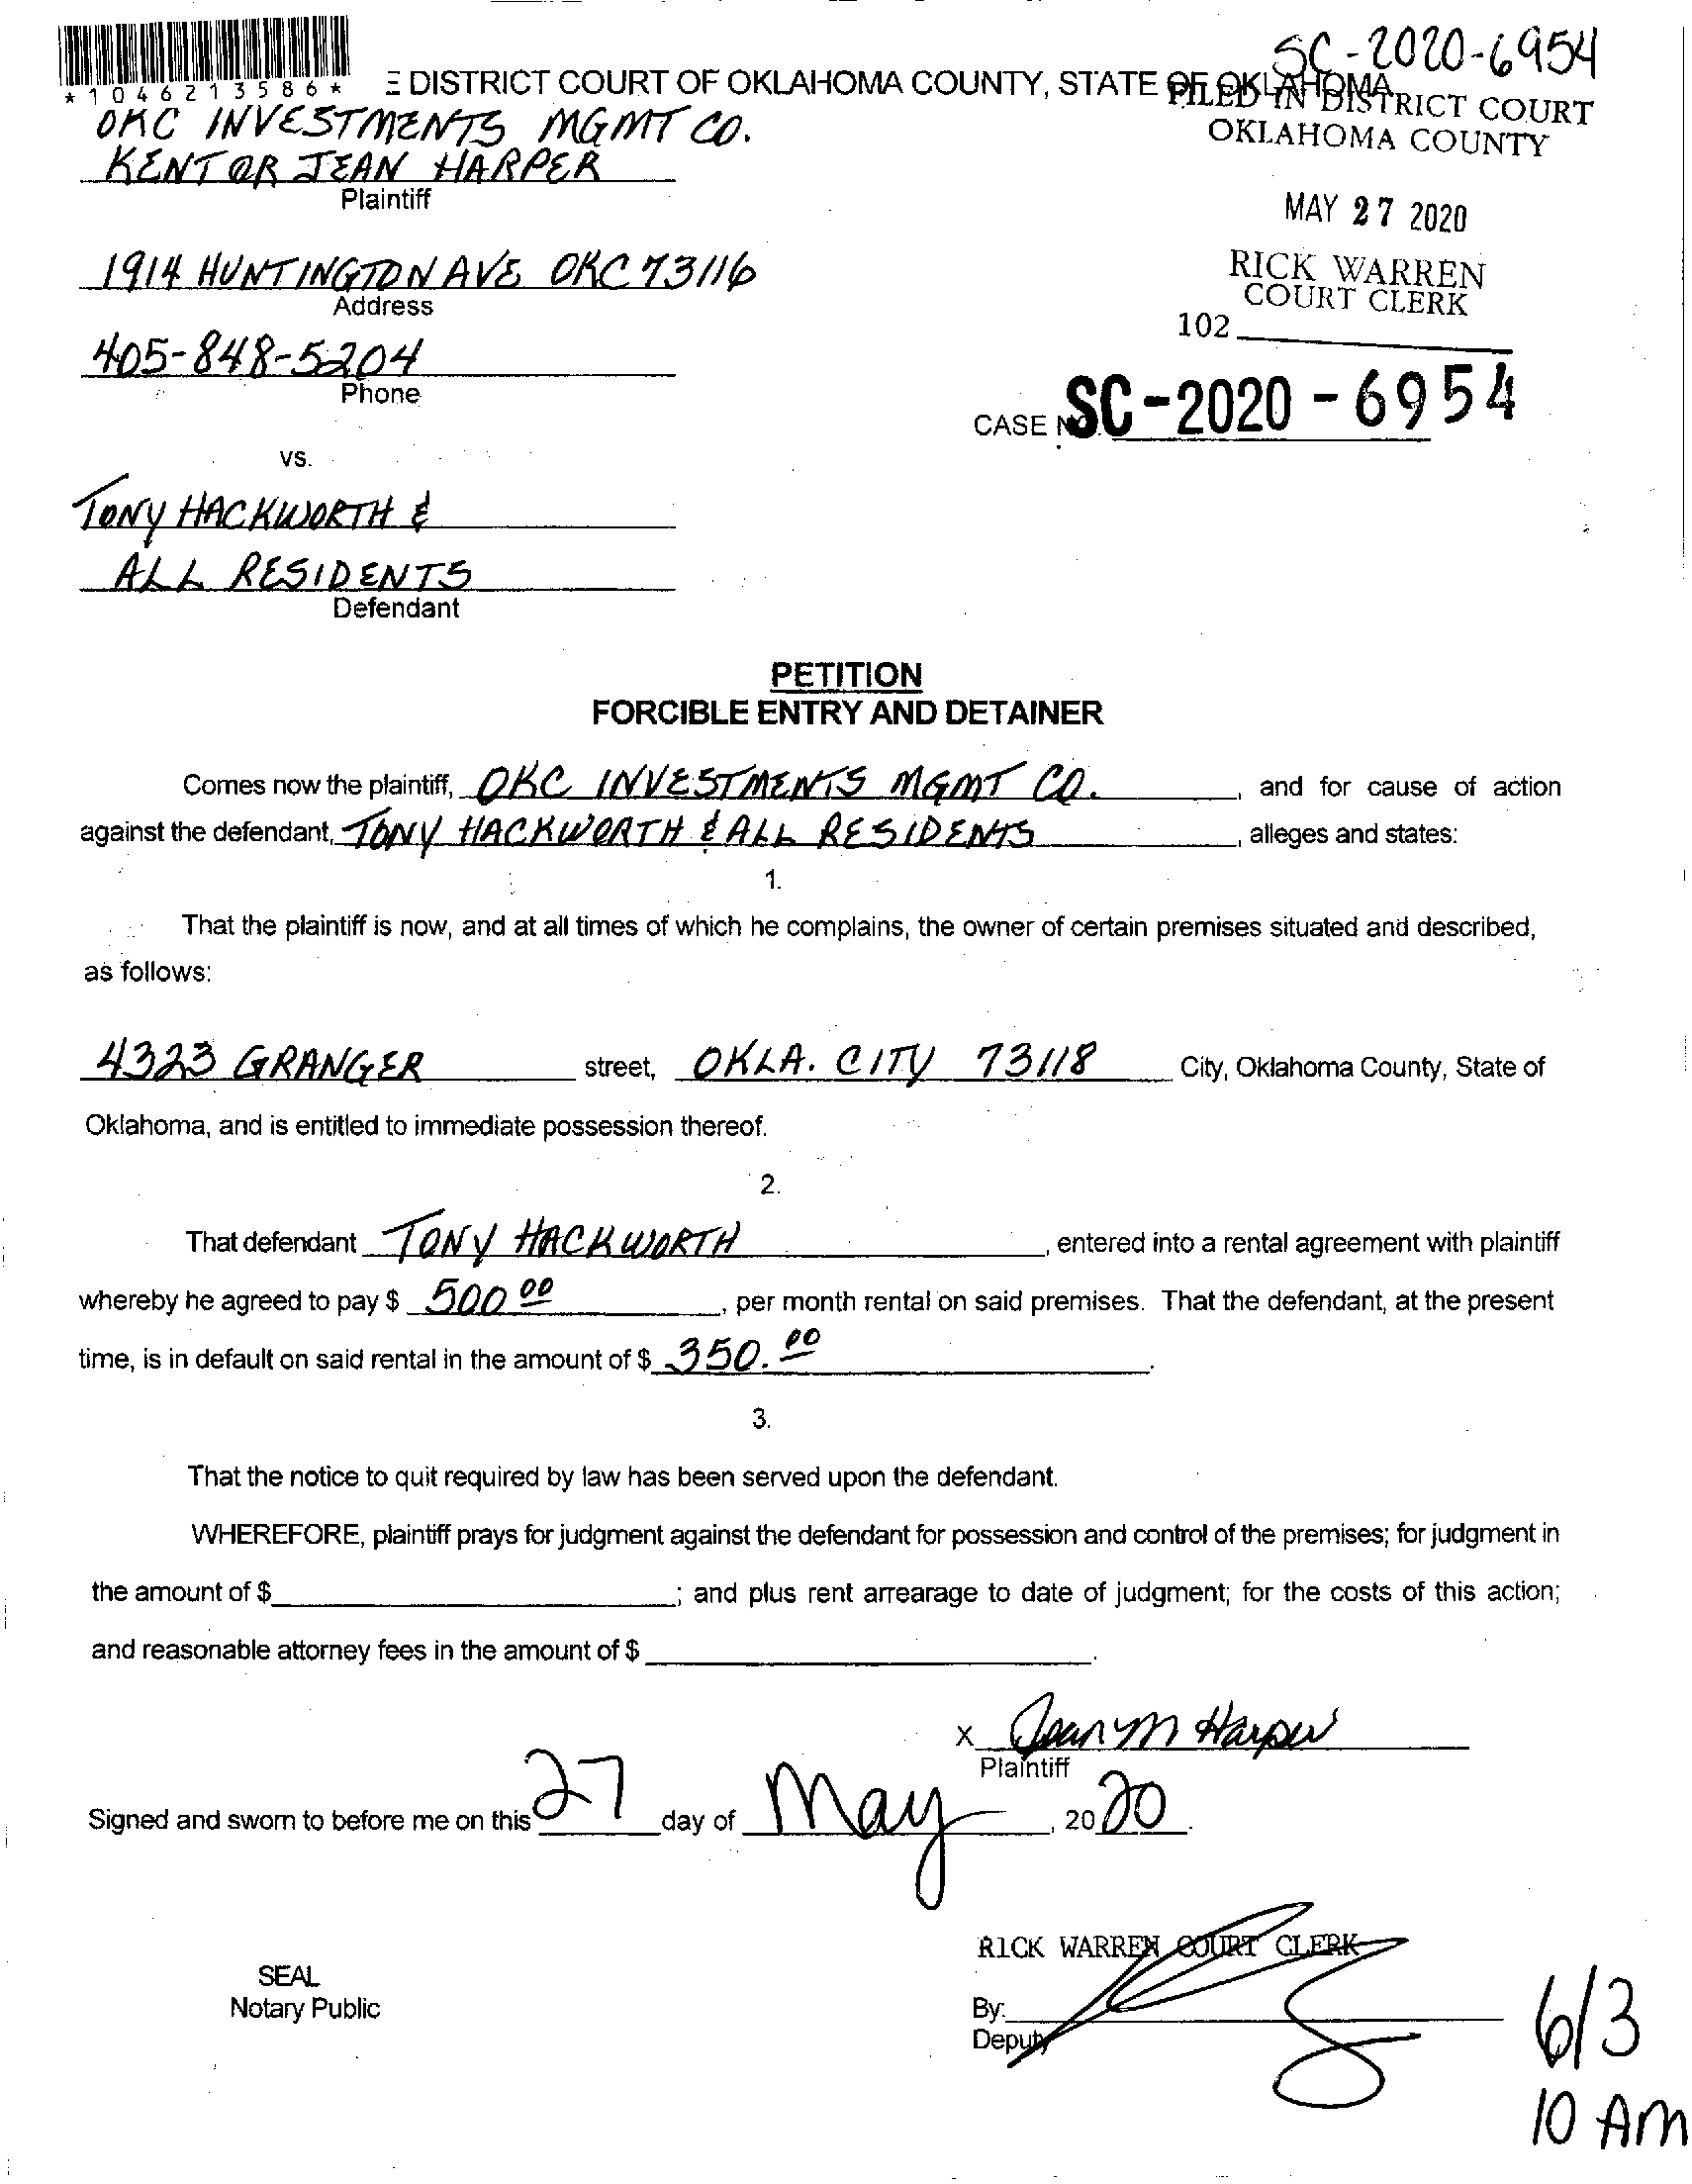 SC-2020-6954
*1046213586*
E DISTRICT COURT OF OKLAHOMA COUNTY, STATE OF OKLAHOMA
FILED IN DISTRICT COURT
OKLAHOMA COUNTY
OKC INVESTMENTS MGMT CO.
KENT OR JEAN HARPER
Plaintiff
MAY 27 2020
1914 HUNTINGTON AVE OKC 73116
Address
RICK WARREN
COURT CLERK
102
405-848-5204
Phone
CASE NO. SC-2020-6954
vs.
TONY HACKWORTH &
ALL RESIDENTS
Defendant
PETITION
FORCIBLE ENTRY AND DETAINER
Comes now the plaintiff, OKC INVESTMENTS MGMT CO., and for cause of action
against the defendant, TONY HACKWORTH & ALL RESIDENTS, alleges and states:
1.
That the plaintiff is now, and at all times of which he complains, the owner of certain premises situated and described,
as follows:
4323 GRANGER street, OKLA. CITY 73118 City, Oklahoma County, State of
Oklahoma, and is entitled to immediate possession thereof.
2.
That defendant TONY HACKWORTH, entered into a rental agreement with plaintiff
whereby he agreed to pay $ 500 00, per month rental on said premises. That the defendant, at the present
time, is in default on said rental in the amount of $ 350. 00.
3.
That the notice to quit required by law has been served upon the defendant.
WHEREFORE, plaintiff prays for judgment against the defendant for possession and control of the premises; for judgment in
the amount of $ ; and plus rent arrearage to date of judgment; for the costs of this action;
and reasonable attorney fees in the amount of $ .
X Jean M Harper
Plaintiff
Signed and sworn to before me on this 27 day of May, 2020.
RICK WARREN COURT CLERK
SEAL
Notary Public
By:
Deputy
6/3
10 AM